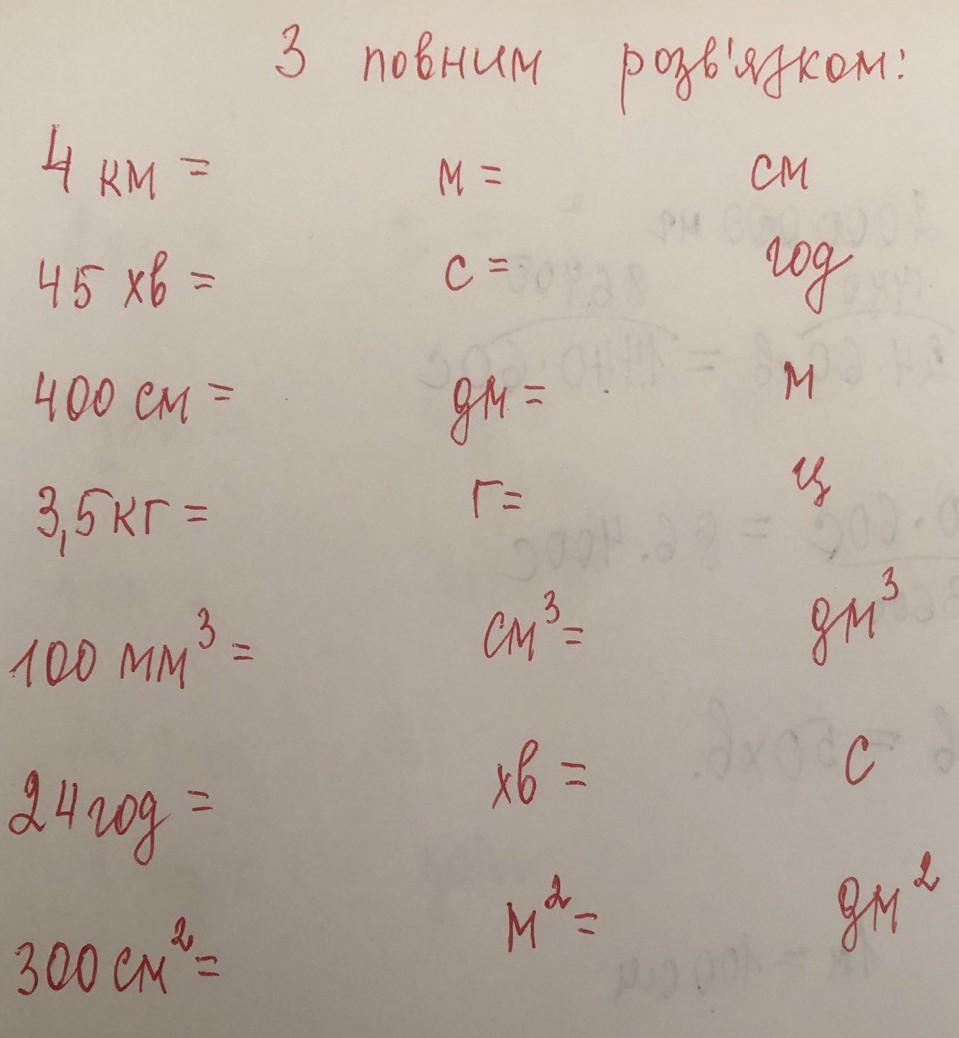 З повним розв'язком:
4 км = м = см
45 хв = с = год
400 см = дм = м
3,5 кг = г = ц
100 мм³ = см³ = дм³
24 год = хв = с
300 см² = м² = дм²